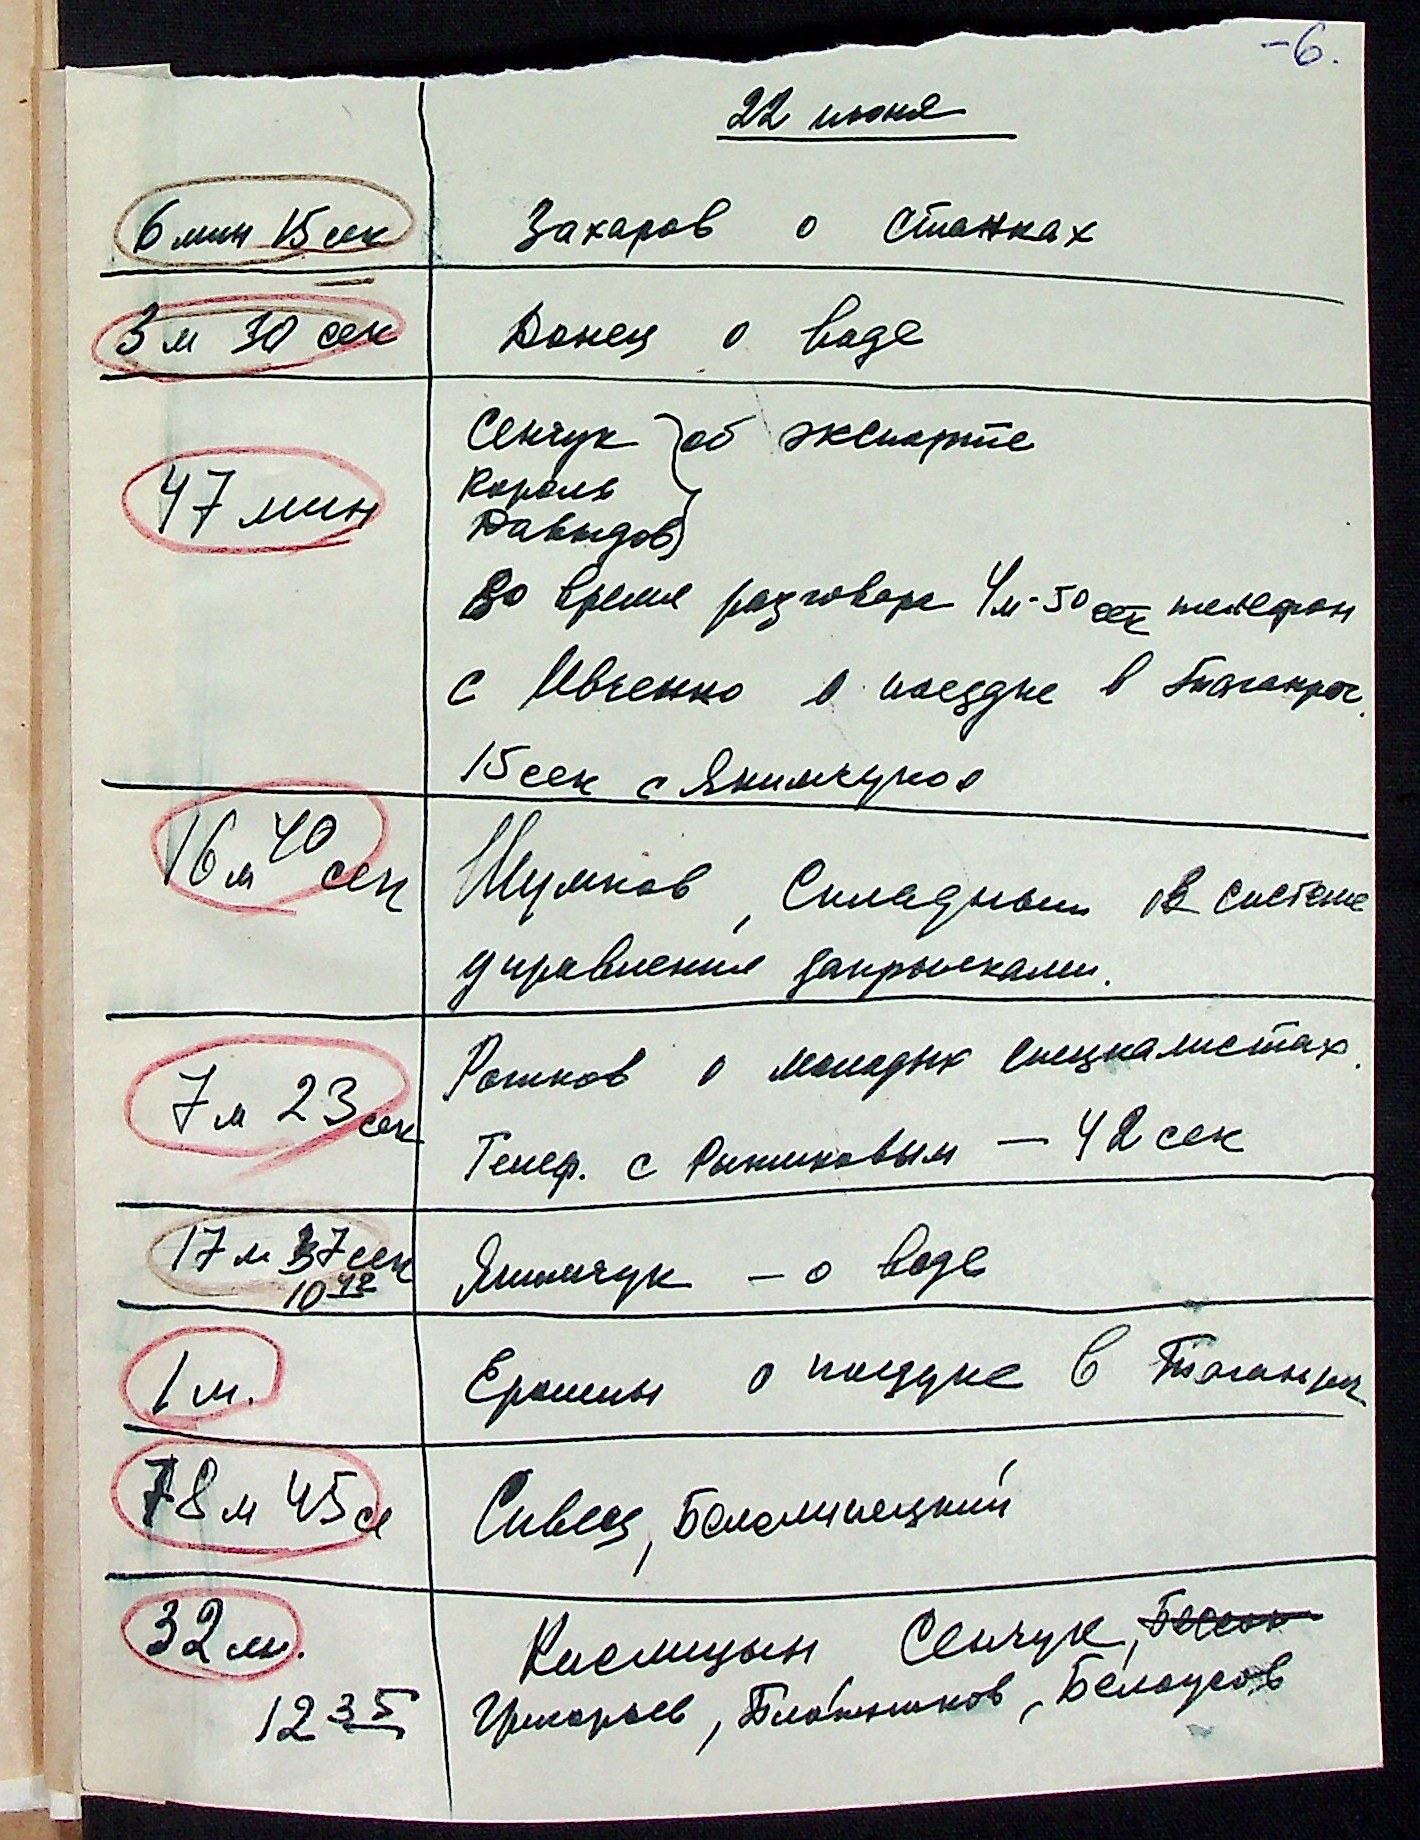 -6.
22 июня
6 мин 15 сек Захаров о станках
3 м 30 сек Донец о воде
Сенчук об экспорте
Король
47 мин Давыдов
Во время разговора 4 м-50 сек телефон
с Ивченко о поездке в Таганрог.
15 сек с Якимчуком
16 м 40 сек Шумков, Складным о системе
управления закрылками.
7 м 23 сек о молодых специалистах.
Телеф. с – 42 сек
17 м 37 сек Якимчук – о воде
10 42
1 м. Ерошин о поездке в Таганрог
78 м 45 се Сивец, Беломылецкий
32 м. Кислицын Сенчук,
12 35 Григорьев, Плотников, Белоусов